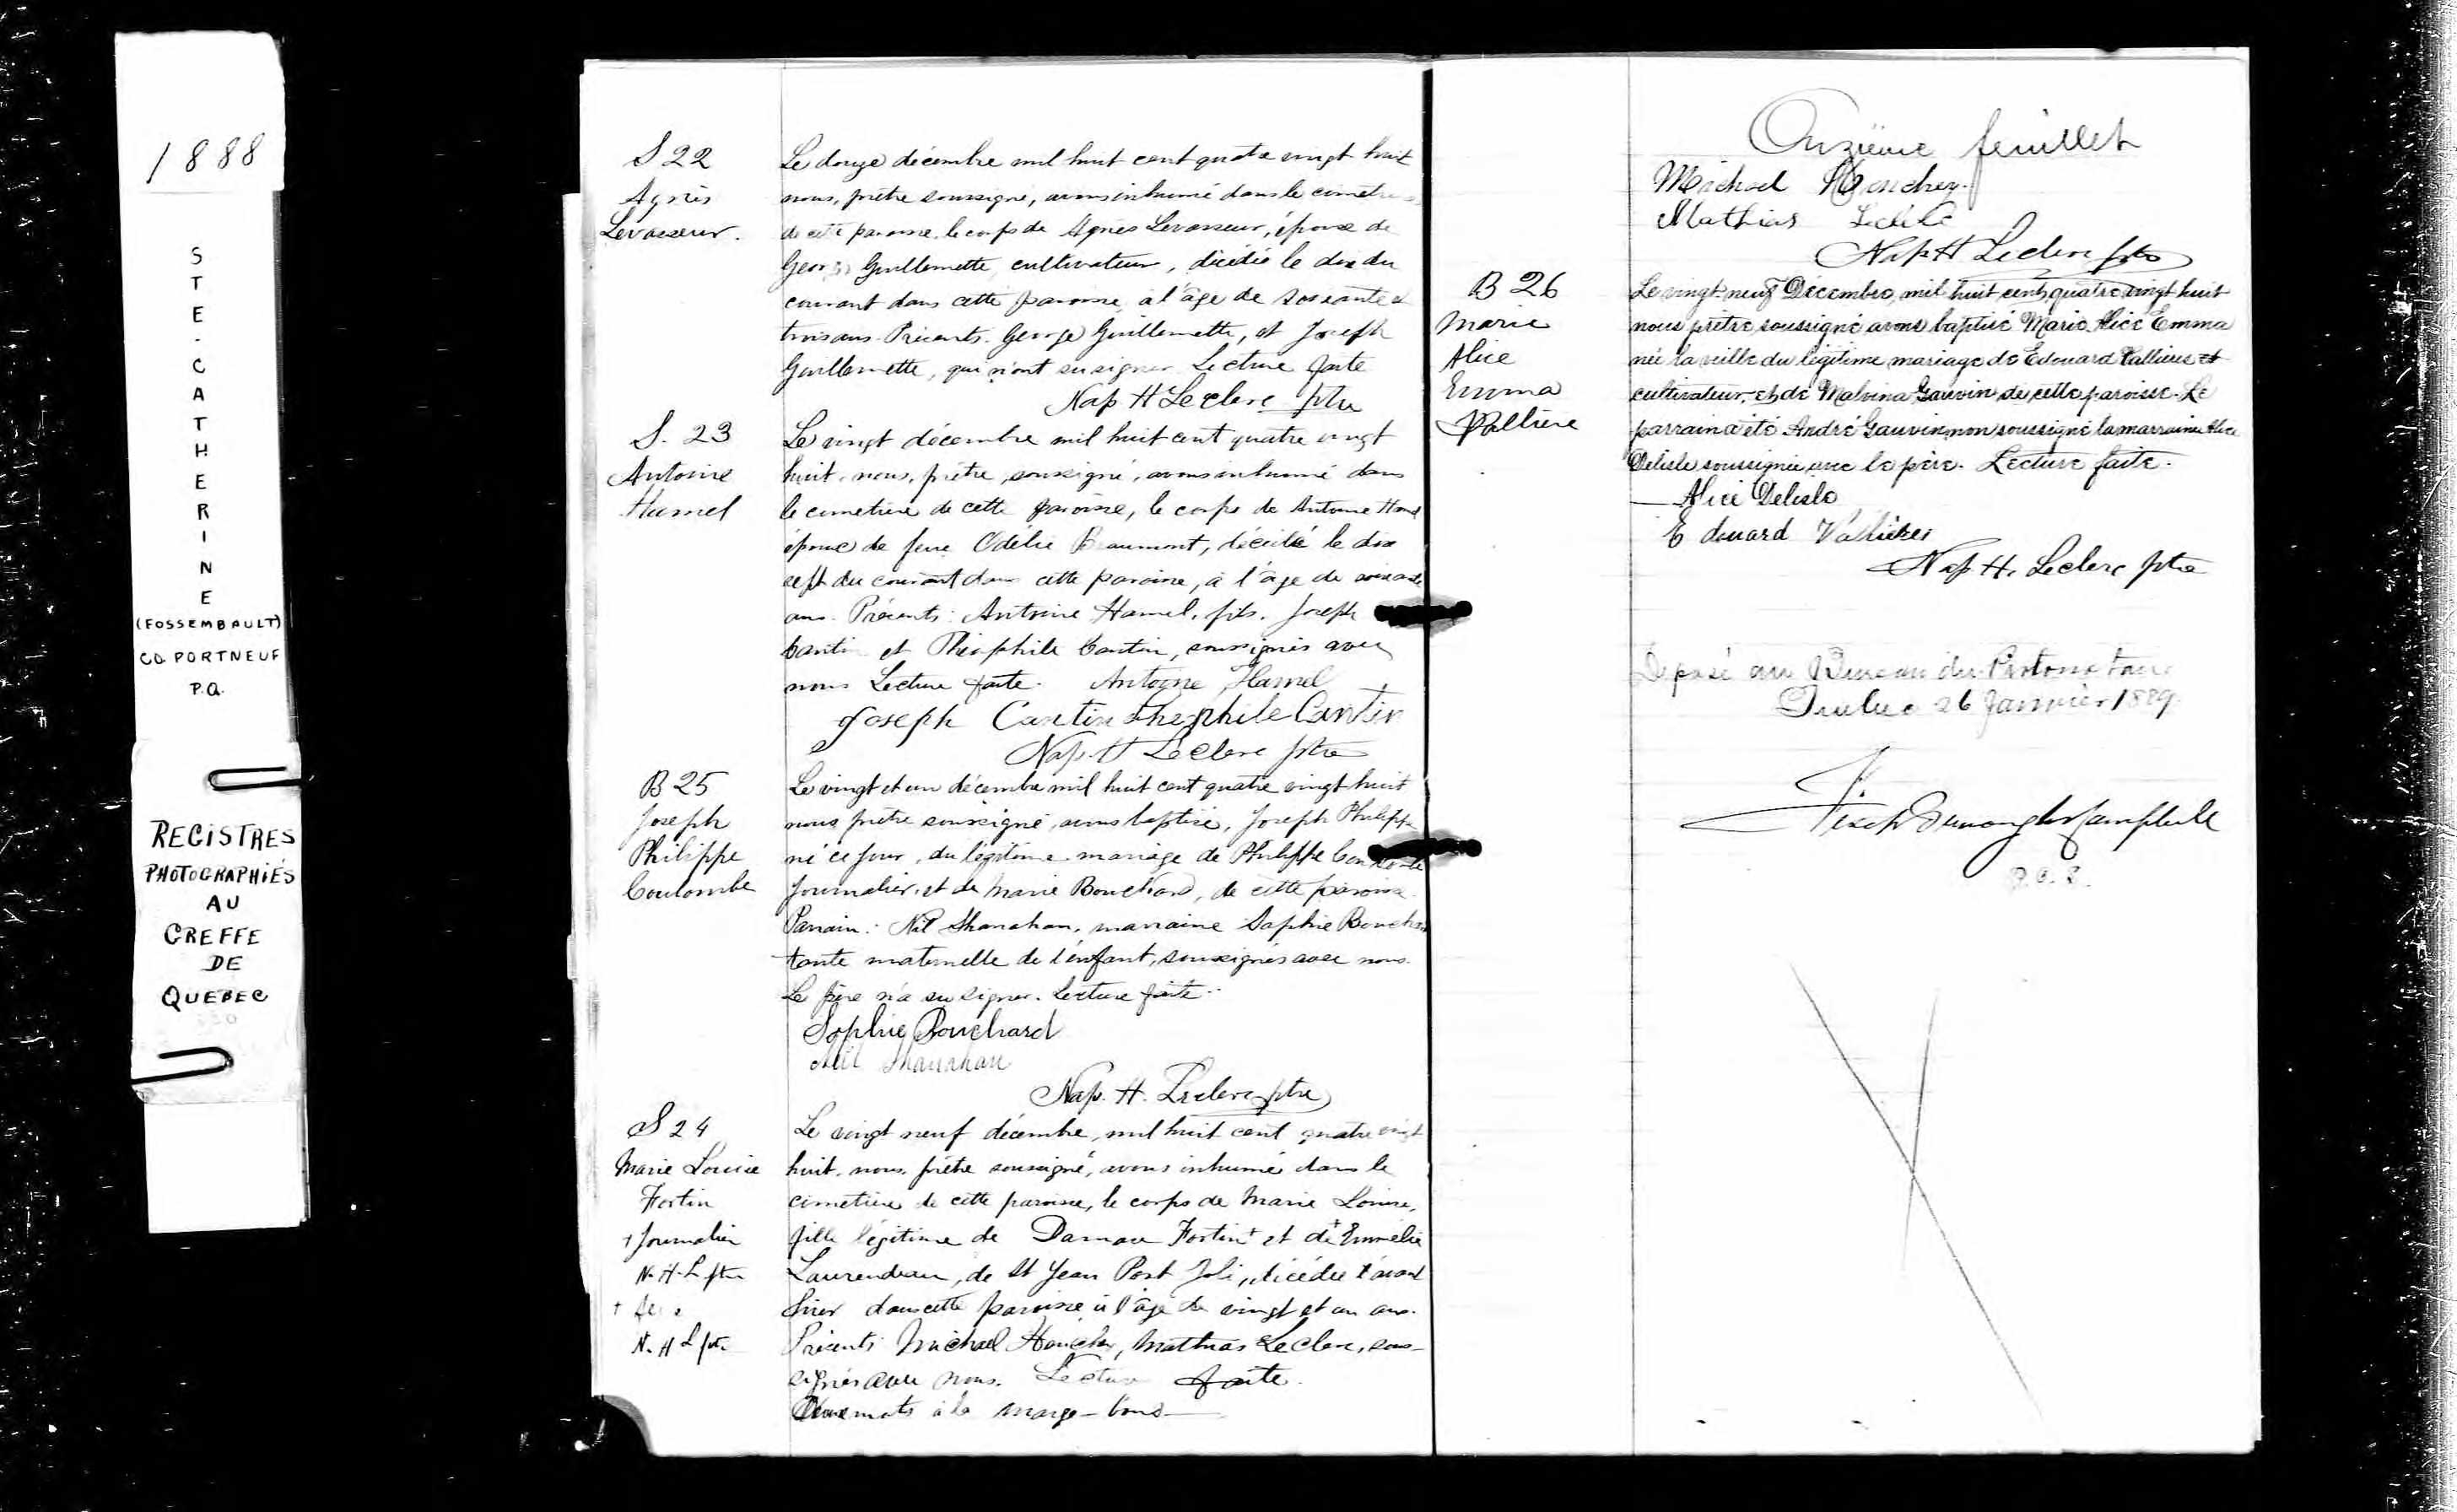 1888
STE-CATHERINE
(FOSSEMBAULT)
CO. PORTNEUF
P.Q.
REGISTRES
PHOTOGRAPHIÉS
AU
GREFFE
DE
QUEBEC
S 22
Agnès
Levasseur.
Le douze décembre mil huit cent quatre vingt huit
nous, prêtre soussigné, avons inhumé dans le
de cette paroisse, le corps de Agnès Levasseur, épouse de
Guillemette cultivateur, décédée le dix du
courant dans cette paroisse, à l'âge de soixante et
trois ans. Présents. George Guillemette, et Joseph
Guillemette, qui n'ont su signer. Lecture faite
Nap H Leclerc ptre
S. 23
Antoine
Hamel
Le vingt décembre mil huit cent quatre vingt
huit, nous, prêtre, soussigné, avons inhumé dans
le cimetière de cette paroisse, le corps de Antoine Hamel
époux de feue Odélie Beaumont, décédé le dix
sept du courant dans cette paroisse, à l'âge de soixante
ans. Présents: Antoine Hamel, fils. Joseph
Cantin et Théophile Cantin, soussignés avec
nous Lecture faite. Antoine Hamel
Joseph Cantin Theophile Cantin
Nap. H Leclerc ptre
B 25
Joseph
Philippe
Coulombe
Le vingt et un décembre mil huit cent quatre vingt huit
nous prêtre soussigné, avons baptisé, Joseph Philippe
né ce jour, du légitime mariage de Philippe Coulombe
journalier, et de Marie Bouchard, de cette paroisse.
Parrain: Nil Shanahan, marraine Sophie Bouchard
tante maternelle de l'enfant, soussignés avec nous.
Le père n'a su signer. Lecture faite.
Sophie Bouchard
Nil Shanahan
Nap. H. Leclerc ptre
S 24
Marie Louise
Fortin
+ Journalier
N. H. L ptre
+
N. H L ptre
Le vingt neuf décembre, mil huit cent quatre vingt
huit, nous, prêtre soussigné, avons inhumé dans le
cimetière de cette paroisse, le corps de Marie Louise,
fille légitime de Damase Fortin+ et de+ Emmélie
Laurendeau, de St Jean Port Joli, décédée avant
hier dans cette paroisse à l'âge de vingt et un ans.
Présents: Michael Mathias Leclerc, sous-
signés avec nous. Lecture faite.
Deux mots à la marge - bons
Onzième feuillet
Michael
Mathias Leclerc
Nap H Leclerc ptre
B 26
Marie
Alice
Emma
Vallière
Le vingt-neuf Décembre, mil huit cent quatre vingt huit
nous prêtre soussigné avons baptisé Marie Alice Emma
née la veille du légitime mariage de Edouard Vallières et
cultivateur, et de Malvina Gauvin de cette paroisse. Le
parrain a été André Gauvin, non soussigné la marraine Alice
Delisle soussignée avec le père. Lecture faite.
Alice Delisle
Edouard Vallières
Nap H. Leclerc ptre
Déposé au Bureau du Protonotaire
Québec 26 Janvier 1889
P.C.S.